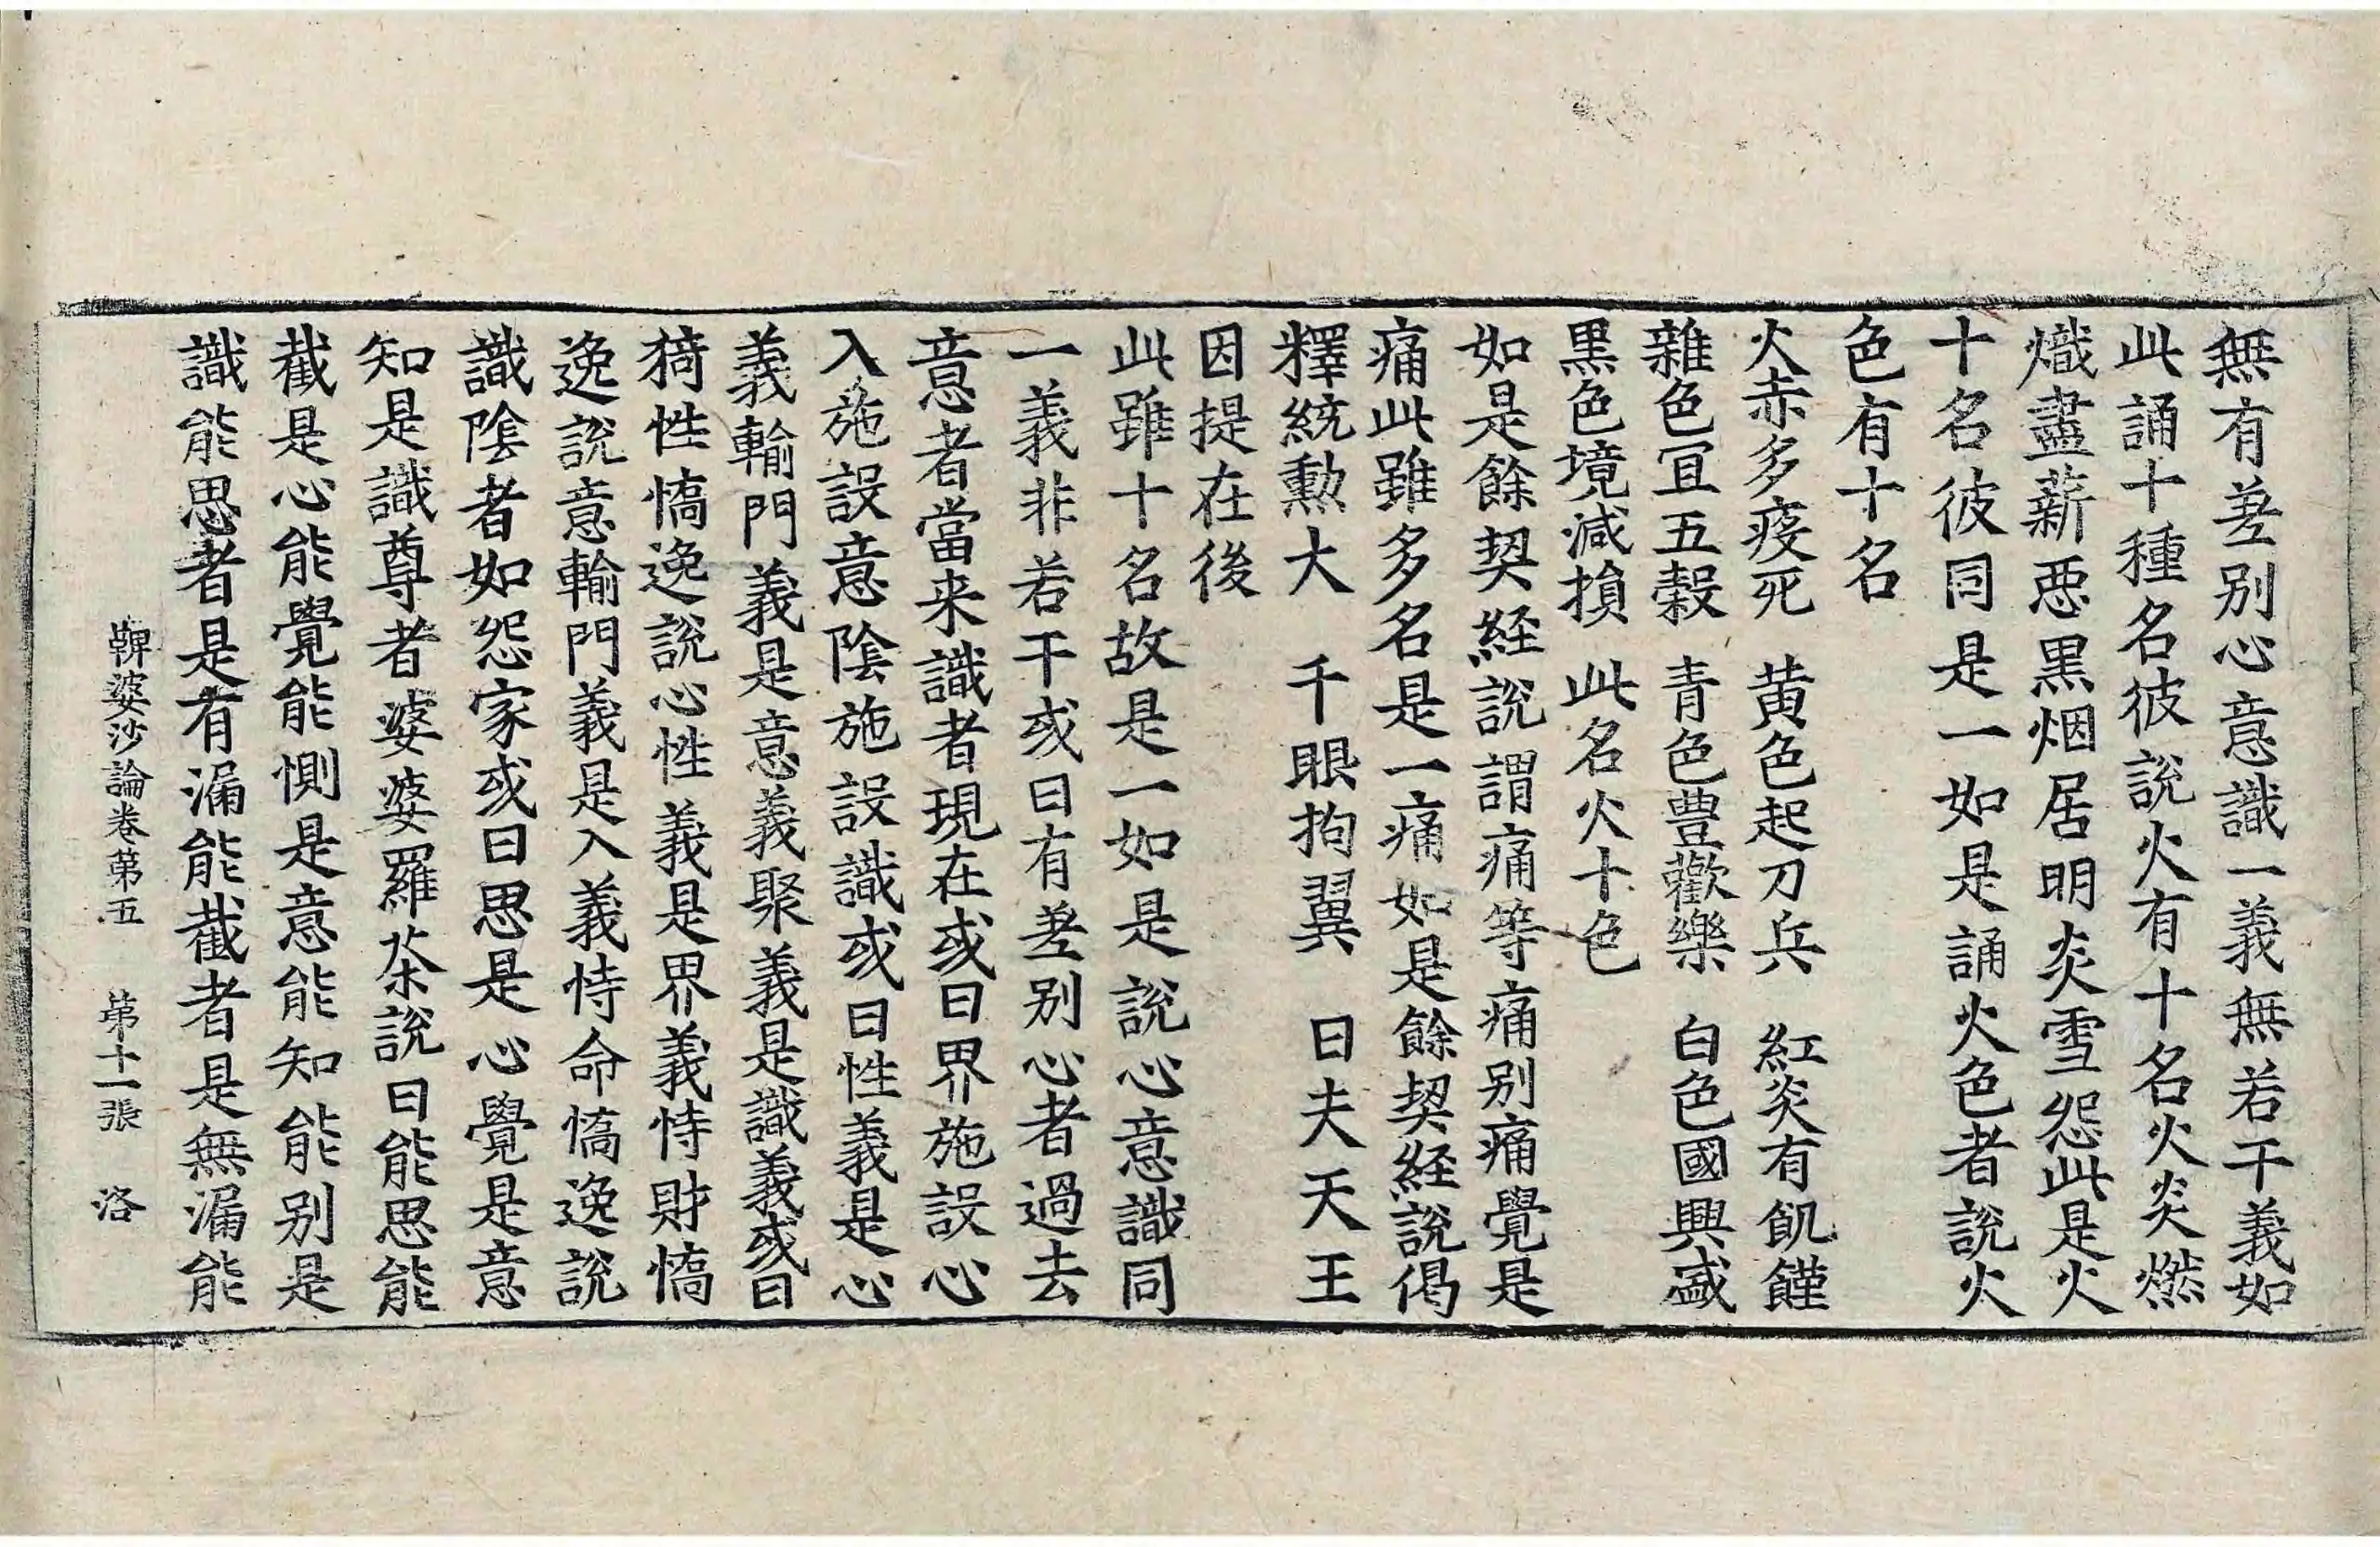 無有差别心意識一義無若干義如
此誦十種名彼說火有十名火炎燃
熾盡薪惡黒烟居明炎雪怨此是火
十名彼同是一如是誦火色者說火
色有十名
火赤多疫死　黄色起刀兵　紅炎有飢饉
雜色宜五穀　青色豊歡樂　白色國興盛
黒色境減損　此名火十色
如是餘契経說謂痛等痛别痛覺是
痛此雖多名是一痛如是餘契経說偈
釋統勲大　千眼拘翼　日夫天王
因提在後
此雖十名故是一如是說心意識同
一義非若干或曰有差别心者過去
意者當来識者現在或曰界施設心
入施設意陰施設識或曰性義是心
義輸門義是意義聚義是識義或曰
猗性憍逸說心性義是界義恃財憍
逸說意輸門義是入義恃命憍逸說
識陰者如怨家或曰思是心覺是意
知是識尊者婆婆羅茶說曰能思能
截是心能覺能惻是意能知能别是
識能思者是有漏能截者是無漏能
鞞婆沙論卷第五　第十一張　洛